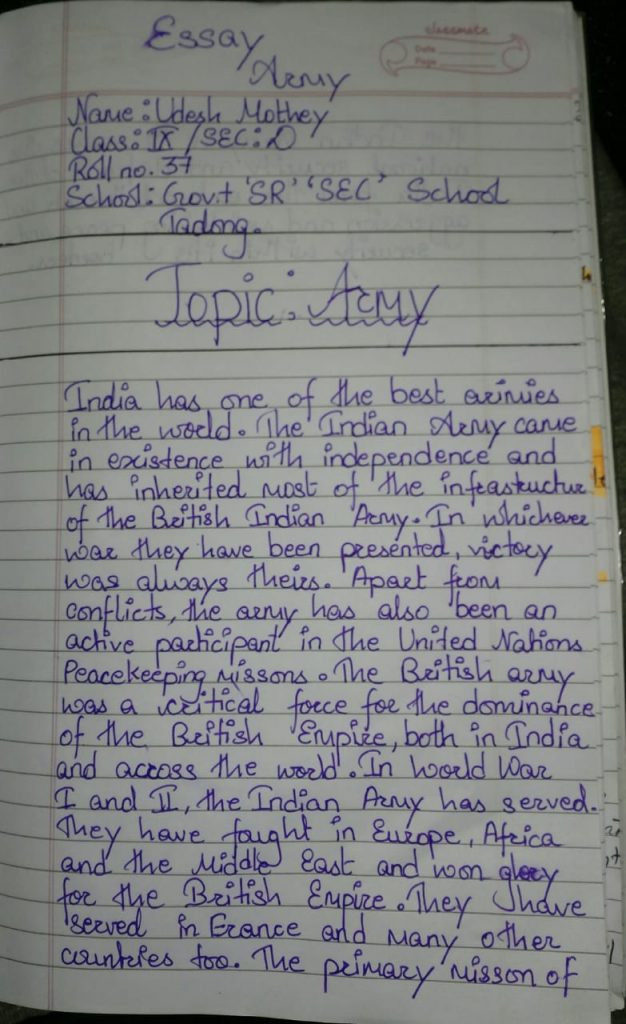 Essay
classmate
Date
Page
Army
Name: Udesh Mothey
Class: IX / SEC: D
Roll no. 37
School: Govt 'SR' 'SEC' School
Tadong.
Topic: Army
India has one of the best armies
in the world. The Indian Army came
in existence with independence and
has inherited most of the infrastuctur
of the British Indian Army. In whichever
war they have been presented, victory
was always theirs. Apart from
conflicts, the army has also been an
active participant in the United Nations
Peacekeeping missons. The British army
was a critical force for the dominance
of the British Empire, both in India
and across the world. In World War
I and II, the Indian Army has served.
They have fought in Europe, Africa
and the Middle East and won glory
for the British Empire. They have
served in France and many other
countries too. The primary misson of